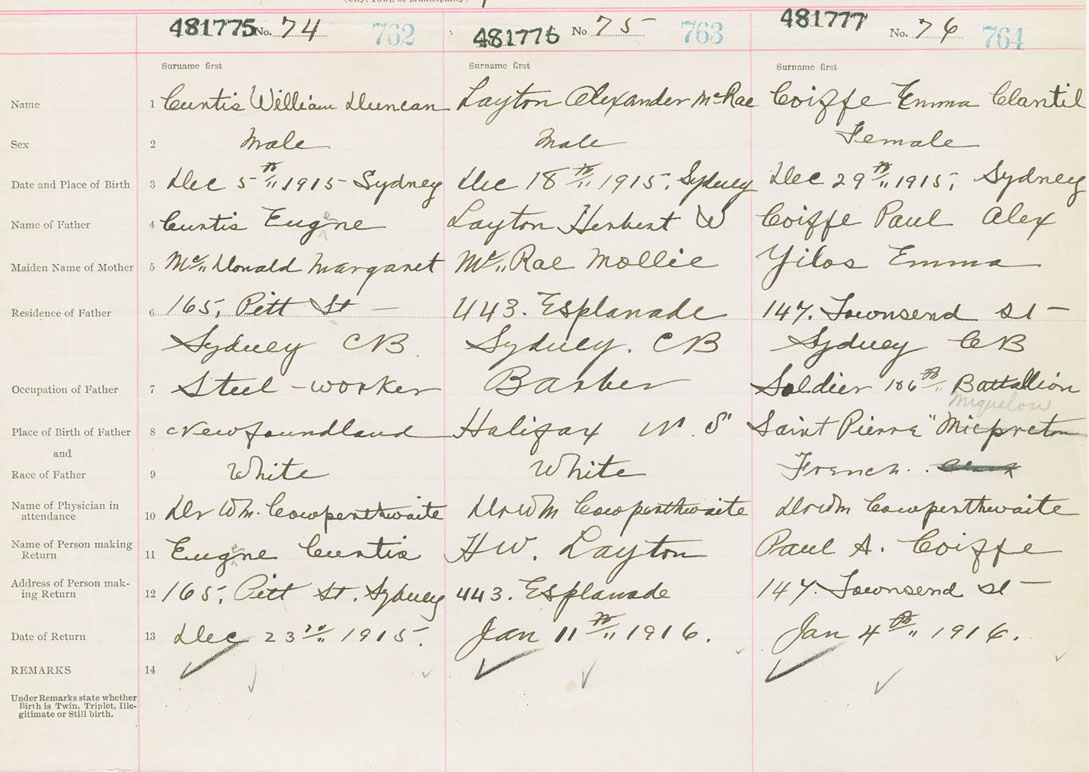 481775 No. 74 762 481776 No 75 763 481777 No. 76 764
Surname first Surname first Surname first
Name 1 Curtis William Duncan Layton Alexander McRae Coiffe Emma Clantil
Sex 2 Male Male Female
Date and Place of Birth 3 Dec 5th 1915 Sydney Dec 18th 1915, Sydney Dec 29th 1915, Sydney
Name of Father 4 Curtis Eugene Layton Herbert W Coiffe Paul Alex
Maiden Name of Mother 5 Mc Donald Margaret Mc Rae Mollie Yilos Emma
Residence of Father 6 165, Pitt St – 443. Esplanade 147. Townsend st –
Sydney CB. Sydney. CB Sydney CB
Occupation of Father 7 Steel-worker Barber Soldier 106th Battallion
Miquelow
Place of Birth of Father 8 Newfoundland Halifax N. S Saint Pierre "
and
Race of Father 9 White White French.
Name of Physician in
attendance 10 Dr Wm. Cowperthwaite Dr Wm Cowperthwaite Dr Wm Cowperthwaite
Name of Person making
Return 11 Eugene Curtis H W. Layton Paul A. Coiffe
Address of Person mak-
ing Return 12 165, Pitt St. Sydney 443. Esplanade 147. Townsend st –
Date of Return 13 Dec 23rd 1915. Jan 11th 1916. Jan 4th 1916.
REMARKS 14
Under Remarks state whether
Birth is Twin, Triplet, Ille-
gitimate or Still birth.